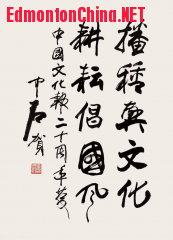 EdmontonChina.NET
播種真文化
耕耘倡國風
中國文化報二十周年慶
中石賀